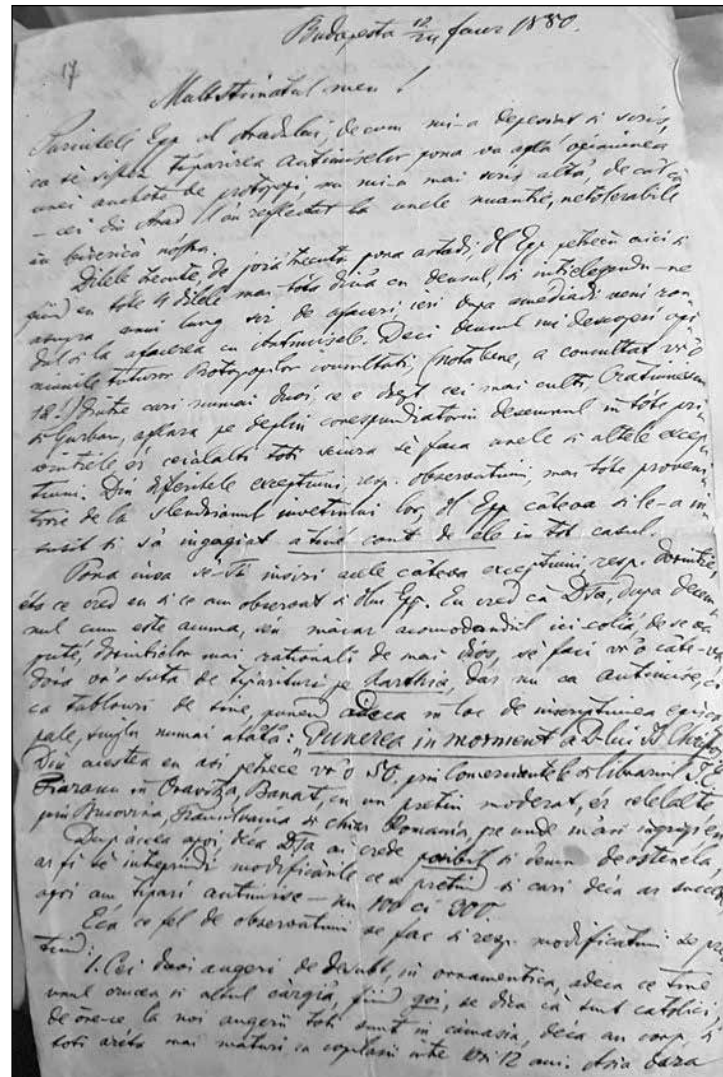 17
Budapesta 12/24 faur 1880.
Multstimatul meu!
Parintele Epp al Aradului, de cum mi-a depesiat si scris,
ca se sistez tiparirea antimiselor pona va aflá opiniunea
unei anchete de protopopi, nu mi-a mai scris alta, decât cà
– cei din Arad l'au reflectat la unele nuantie, netolerabile
in biserica nóstra.
Dilele trecute, de joia trecuta pona astadi, dl Epp petrecù aici si
fiind en tote 4 dilele mai tóta diua cu densul, si intielegendu-ne
asupra unui lung sir de afaceri, ieri dupa amediadi veni ron-
dul si la afacerea cu Antimisele. Deci densul mi descoperi opi-
niunile tuturor Protopopilor consultati, (notabene, a consultat vr'o
18!) dintre cari numai duoi, ce e drept cei mai culti, Cratiunescu
si Gurban, aflara pe deplin corespundiatoriu desemnul in tóte pri-
vintiele, ér ceialalti toti sciura sè faca unele si altele excep-
tiuni. Din diferitele exceptiuni, resp. observatiuni, mai tóte proveni-
tóre de la slendrianul invetiului lor, dl Epp câteva si le-a in-
susit si s'a ingagiat a tiené cont de ele in tot casul.
Pona insa sè-Ti insiri acele câteva exceptiuni, resp. dorintie,
éta ce cred eu si ce am observat si dlui Epp. Eu cred cà DTa, dupa desem-
nul cum este acuma, séu màcar acomodandul ici colià, de se va
puté, dorintielor mai rationali de mai diós, sè faci vr'o câte-va
dóra vr'o suta de tiparituri pe charthia, dar nu ca antimise, ci
ca tablouri de sine, punend adeca in loc de inscriptiunea episco-
pale, simplu numai atâta: "Punerea in morment a D-lui Is. Christos"
Din acestea eu asi petrece vr'o 50. prin Comerciantele si librariul I. E.
Tieranu in Oravitza, Banat, cu un pretiu moderat, ér celelalte
prin Bucovina, Transilvania si chiar Romania, pe unde m'asi ingrigi eu
Dup'aceea apoi déca DTa ai crede posibil si demn de ostenéla,
ar fi sè intreprindi modificàrile ce se pretind si cari déca ar succede
apoi am tipari antimise – nu 100 ci 300.
Éca ce fel de observatiuni se fac si resp. modificatiuni se pre-
tind:
1. Cei duoi angeri de desubt, in ornamentica, adeca ce tiene
unul crucea si altul cârgiá, fiind goi, se dica cà sunt catolici,
de óre-ce la noi angerii toti sunt in càmasia, déca au corp, si
toti aréta mai maturi, ca copilasii intre 10 si 12 ani. Asia dara